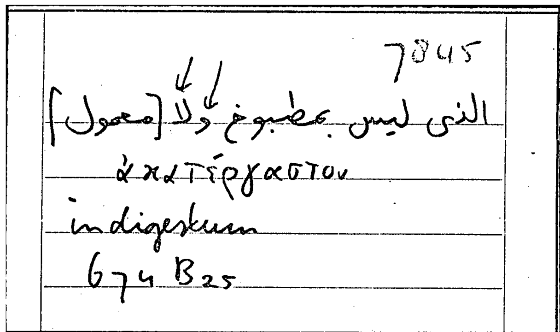 7845
الذى ليس بمطبوخ ولا [معمول]
ἀκατέργαστον
indigestum
674 B25